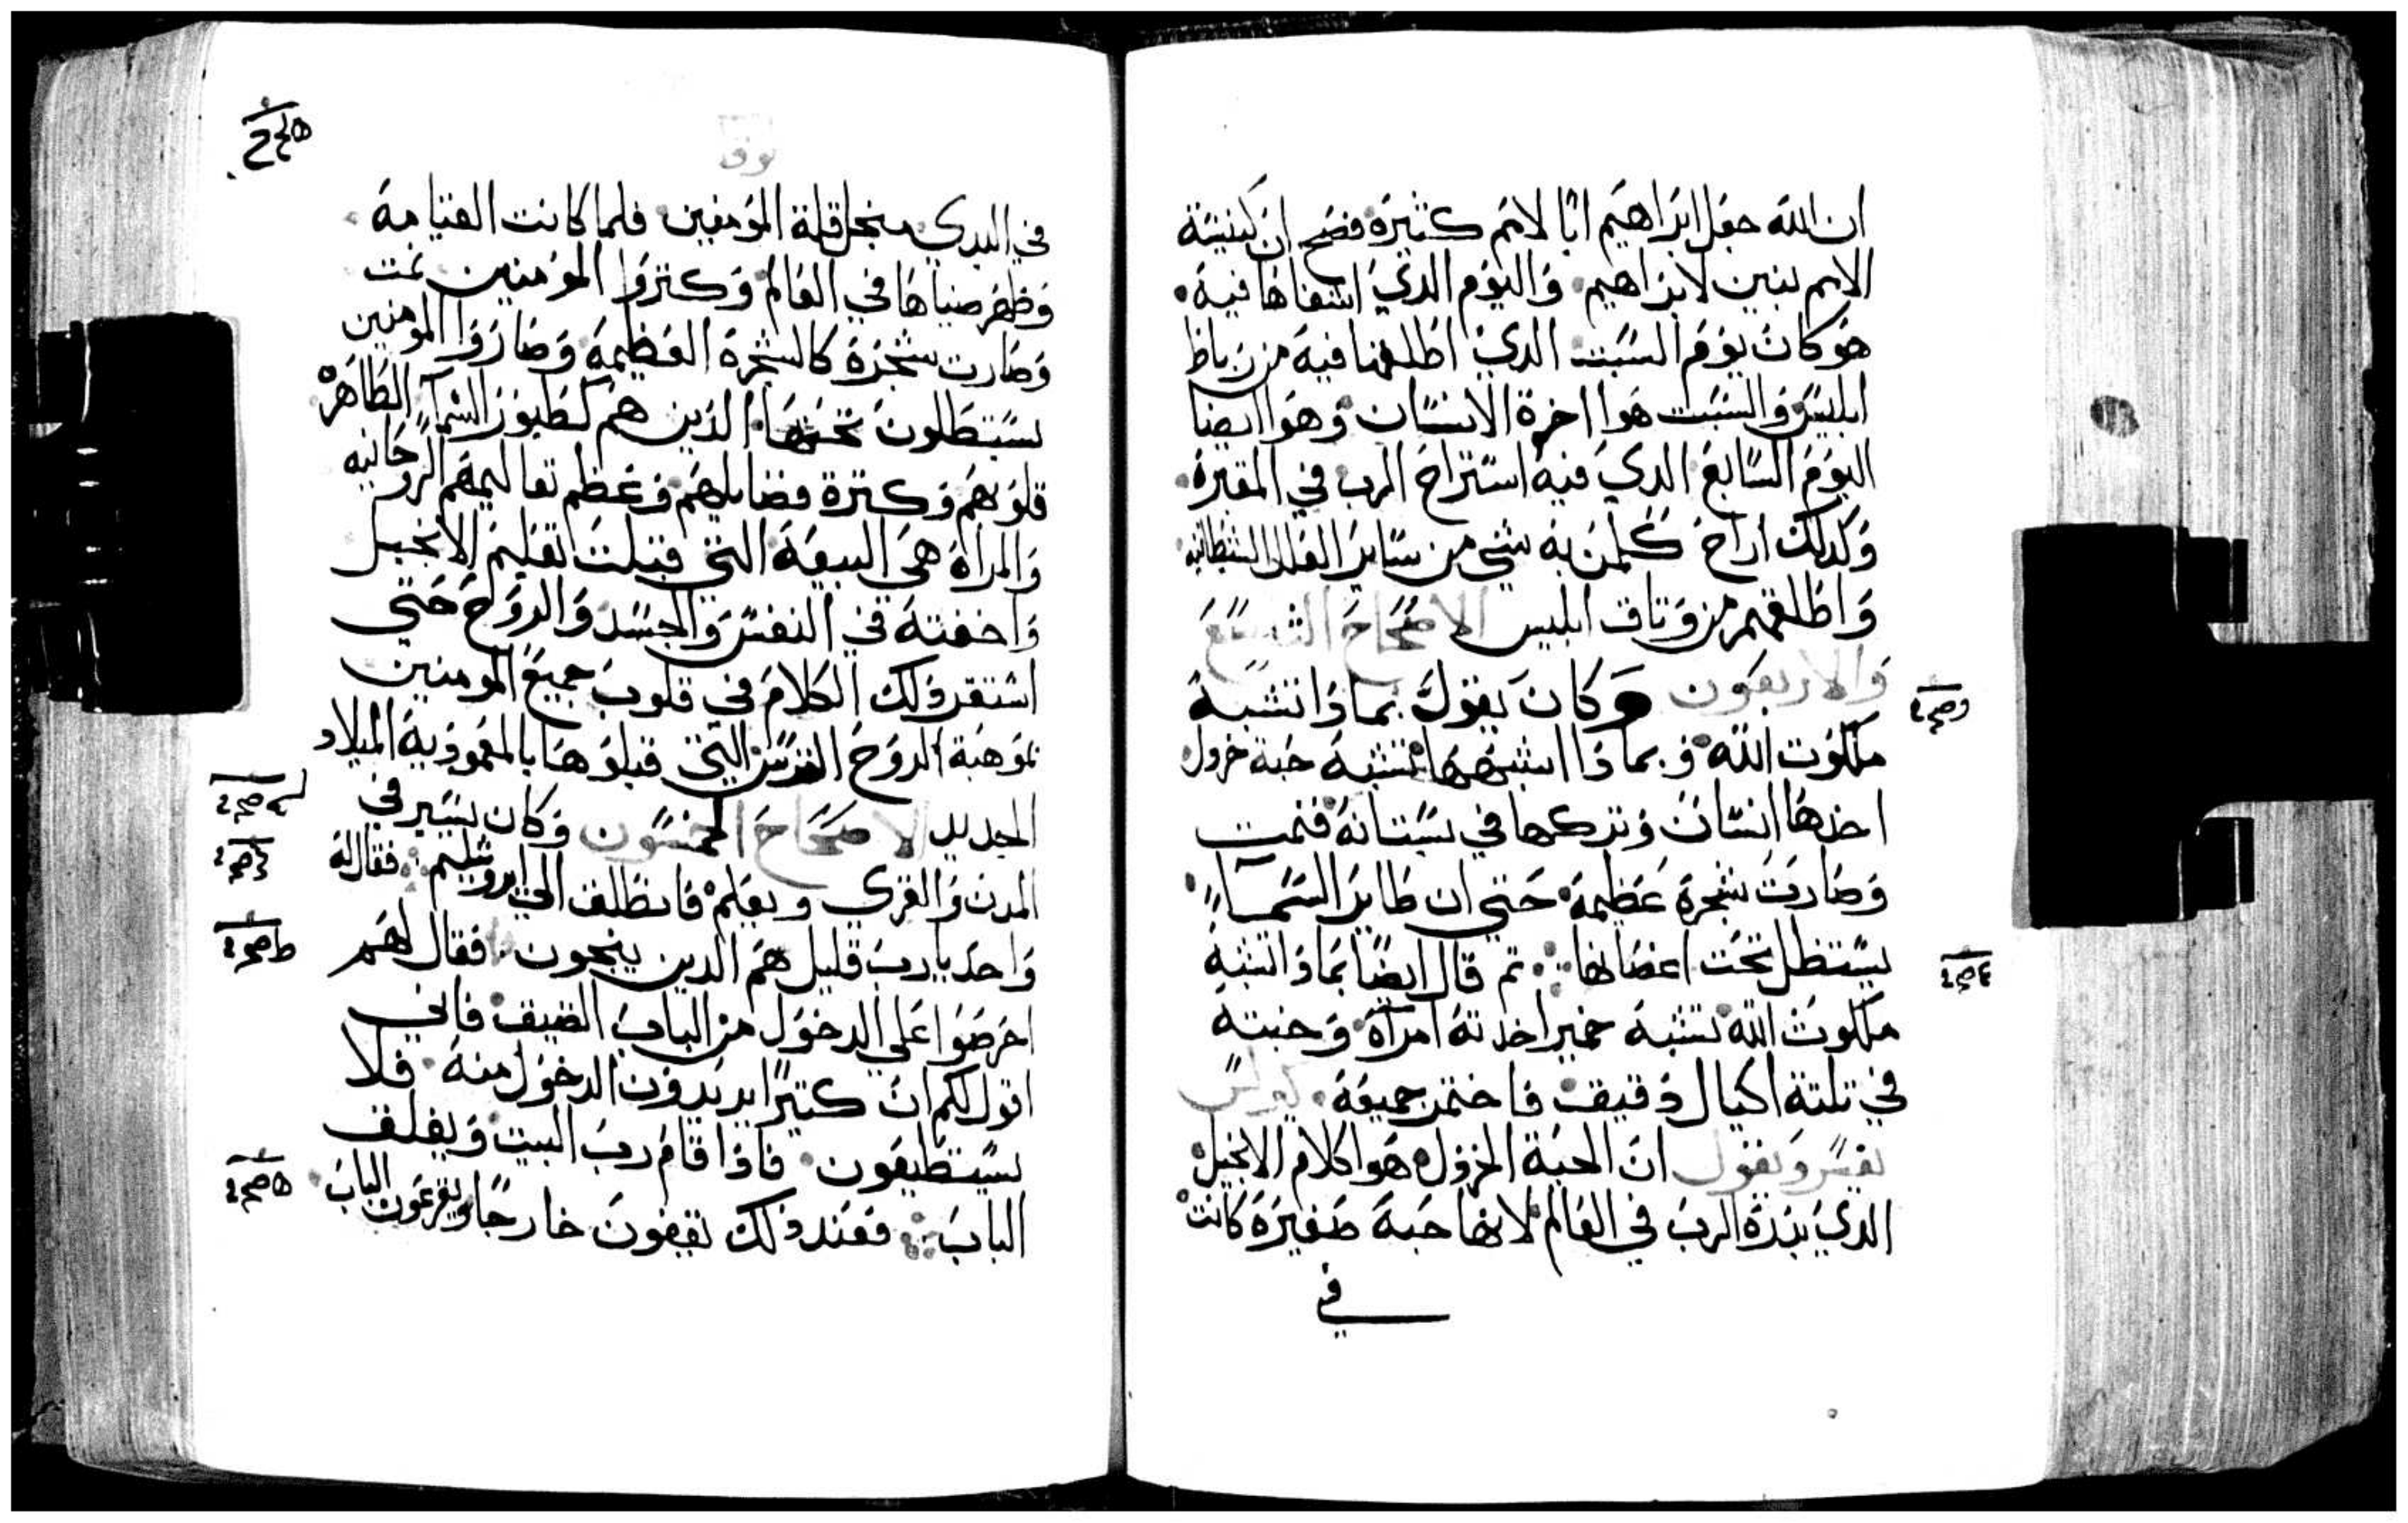 ان الله جعل ابراهيم ابًا لامم كثيرة فصح ان كينينة
الامم بنين لابراهيم واليوم الدي اشفاها فيه
هو كان يوم السبت الدي اطلقها فيه من رباط
ابليس والسبت هوا اخرة الانسان وهوا ايضا
اليوم السابع الدي فيه استراح الرب في المقبرة
وكدلك اراح كلمن به شي من ساير العلل الشيطانيه
واطلقهم من وتاق ابليس الاصحاح التاسع
والاربعون وكان يقول بمادا تشبه
ملكوت الله وبمادا اشبهها تشبه حبة خردل
اخدها انسان وتركها في بستانه فنمت
وصارت شجرة عظيمة حتى ان طاير السمآء
يستظل تحت اغصانها تم قال ايضًا بمادا اشبه
ملكوت الله تشبه خمير اخدته امرآة وخبته
في تلتة اكيال دقيق فاختمر جميعه كيرلس
يفسر ويقول ان الحبة الخردل هوا كلام الانجيل
الدي بدره الرب في العالم لانها حبة صغيرة كانت
في
لوقا
في البدي منجل قلة المومنين فلما كانت القيامة
وظهر ضياها في العالم وكتروا المومنين نمت
وصارت شجرة كالشجرة العظيمة وصاروا المومنين
يستظلون تحتها الدين هم كطيور السمآء الطاهره
قلوبهم وكترة فضايلهم وعظم تعاليمهم الروحانيه
والمراة هي البيعة التي قبلت تعليم الانجيل
واخفته في النفس والجسد والروح حتي
استقر دلك الكلام في قلوب جميع المومنين
بموهبة الروح القدس التي قبلوها بالمعمودية الميلاد
الجديد الاصحاح الخمسون وكان يسير في
المدن والقري ويعلم فانطلق الي ايروشليم فقال له
واحد يارب قليل هم الدين ينجون فقال لهم
احرصوا علي الدخول من الباب الضيق فاني
اقول لكم ان كتيرًا يريدون الدخول منه فلا
يستطيعون فادا قام رب البيت ويغلق
الباب فعند دلك تقفون خارجًا وتقرعون الباب